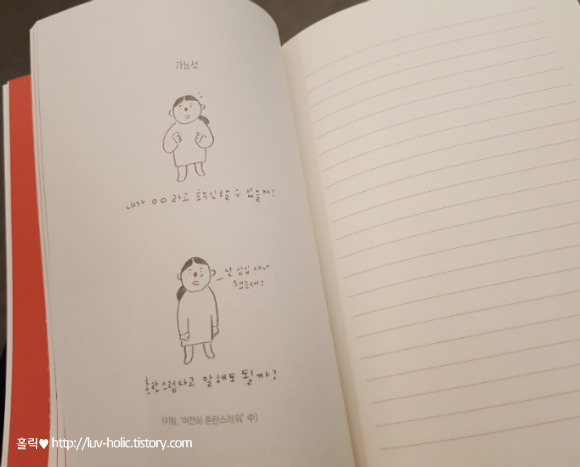 가능성
내가 OO라고 확신할 수 있을까?
됐는데?
혼란스럽다고 말해도 될까?
'여전히 혼란스러워' 中)
홀릭♥ http://luv-holic.tistory.com